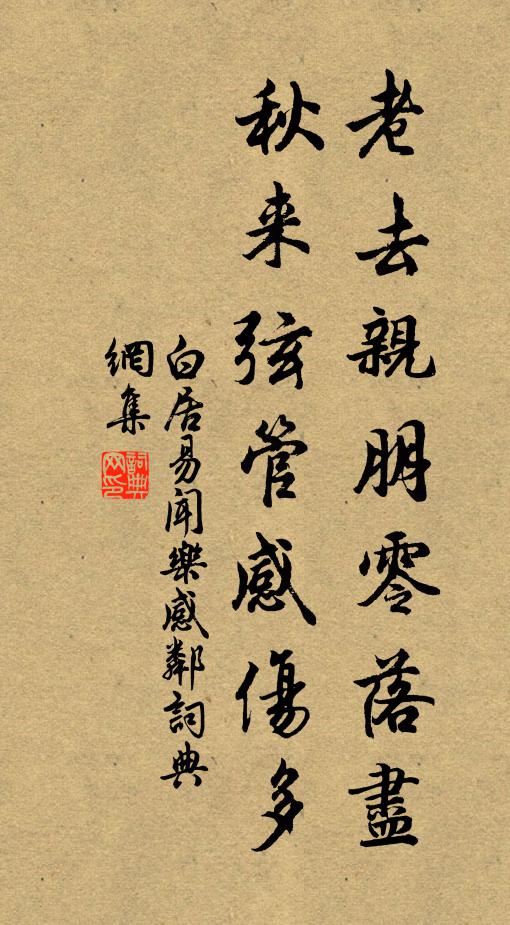 老去親朋零落盡
秋来弦管感傷多
白居易聞樂感鄰詞典
網集
詞典
网印